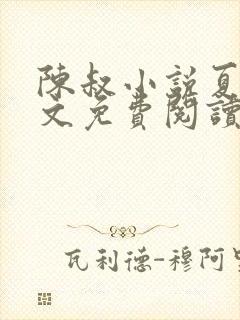 陳叔小說夏
文免費閱讀
瓦利德-穆阿